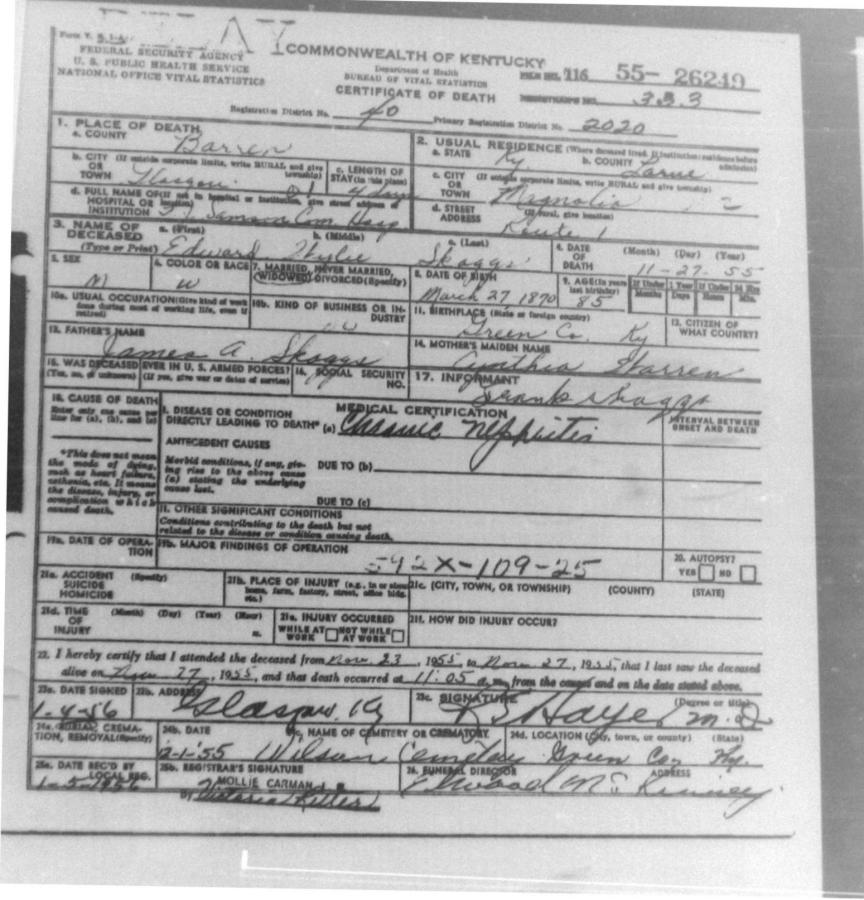 DELAY
Form V. S. 1-A
FEDERAL SECURITY AGENCY
U. S. PUBLIC HEALTH SERVICE
NATIONAL OFFICE VITAL STATISTICS
COMMONWEALTH OF KENTUCKY
Department of Health
BUREAU OF VITAL STATISTICS
CERTIFICATE OF DEATH
FILE NO. 116 55- 26249
REGISTRAR'S NO. 333
Registration District No. 40 Primary Registration District No. 2020
1. PLACE OF DEATH
a. COUNTY Barren
b. CITY (If outside corporate limits, write RURAL and give township)
OR
TOWN Glasgow
c. LENGTH OF STAY (in this place)
4 days
d. FULL NAME OF (If not in hospital or institution, give street address or location)
HOSPITAL OR
INSTITUTION T. J. Samson Com Hosp
2. USUAL RESIDENCE (Where deceased lived. If institution: residence before admission)
a. STATE Ky b. COUNTY Larue
c. CITY (If outside corporate limits, write RURAL and give township)
OR
TOWN Magnolia
d. STREET (If rural, give location)
ADDRESS Route 1
3. NAME OF DECEASED
(Type or Print)
a. (First) b. (Middle) c. (Last)
Edward Wylie Skaggs
4. DATE OF DEATH (Month) (Day) (Year)
11-27-55
5. SEX
M
6. COLOR OR RACE
W
7. MARRIED, NEVER MARRIED, WIDOWED, DIVORCED (Specify)
8. DATE OF BIRTH
March 27, 1870
9. AGE (In years last birthday)
85
If Under 1 Year If Under 24 Hrs
Months Days Hours Min.
10a. USUAL OCCUPATION (Give kind of work done during most of working life, even if retired)
10b. KIND OF BUSINESS OR INDUSTRY
11. BIRTHPLACE (State or foreign country)
Green Co. Ky
12. CITIZEN OF WHAT COUNTRY?
13. FATHER'S NAME
James A. Skaggs
14. MOTHER'S MAIDEN NAME
Cynthia Warren
15. WAS DECEASED EVER IN U. S. ARMED FORCES?
(Yes, no, or unknown) (If yes, give war or dates of service)
16. SOCIAL SECURITY NO.
17. INFORMANT
Frank Skaggs
18. CAUSE OF DEATH
Enter only one cause per line for (a), (b), and (c)
*This does not mean the mode of dying, such as heart failure, asthenia, etc. It means the disease, injury, or complication which caused death.
MEDICAL CERTIFICATION
I. DISEASE OR CONDITION
DIRECTLY LEADING TO DEATH* (a) Chronic Nephritis
INTERVAL BETWEEN ONSET AND DEATH
ANTECEDENT CAUSES
Morbid conditions, if any, giving rise to the above cause (a) stating the underlying cause last.
DUE TO (b)
DUE TO (c)
II. OTHER SIGNIFICANT CONDITIONS
Conditions contributing to the death but not related to the disease or condition causing death.
19a. DATE OF OPERATION
19b. MAJOR FINDINGS OF OPERATION
592X-109-25
20. AUTOPSY?
YES NO
21a. ACCIDENT (Specify)
SUICIDE
HOMICIDE
21b. PLACE OF INJURY (e.g., in or about home, farm, factory, street, office bldg. etc.)
21c. (CITY, TOWN, OR TOWNSHIP) (COUNTY) (STATE)
21d. TIME OF INJURY (Month) (Day) (Year) (Hour)
m.
21e. INJURY OCCURRED
WHILE AT WORK NOT WHILE AT WORK
21f. HOW DID INJURY OCCUR?
22. I hereby certify that I attended the deceased from Nov. 23, 1955, to Nov. 27, 1955, that I last saw the deceased
alive on Nov. 27, 1955, and that death occurred at 11:05 a.m., from the causes and on the date stated above.
23a. DATE SIGNED
1-4-56
23b. ADDRESS
Glasgow, Ky
23c. SIGNATURE (Degree or title)
Hayes M.D.
24a. BURIAL, CREMATION, REMOVAL (Specify)
24b. DATE
12-1-'55
24c. NAME OF CEMETERY OR CREMATORY
Wilson Cemetery
24d. LOCATION (City, town, or county) (State)
Green Co. Ky.
25a. DATE REC'D BY LOCAL REG.
1-5-1956
25b. REGISTRAR'S SIGNATURE
MOLLIE CARMAN
By Victoria
26. FUNERAL DIRECTOR ADDRESS
Elwood McKinney